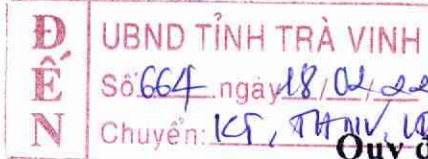 ĐẾN
UBND TỈNH TRÀ VINH
Số: 664 ngày 18/02/22
Chuyển: KT, THNV,
Quy đ